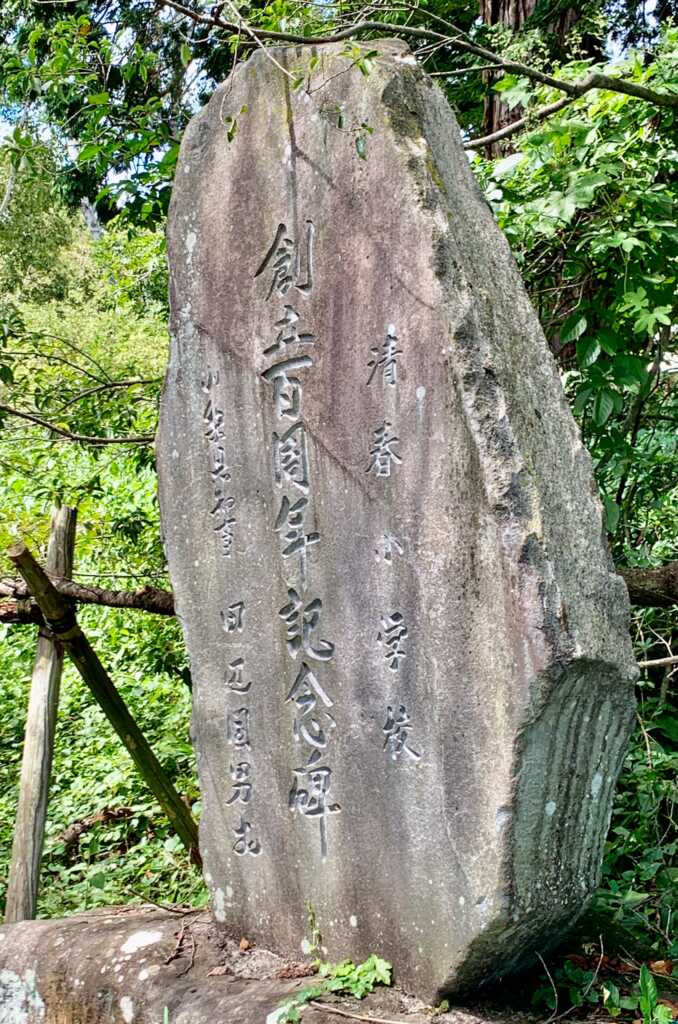 清春小学校
創立百周年記念碑
山梨県知事 田辺国男書